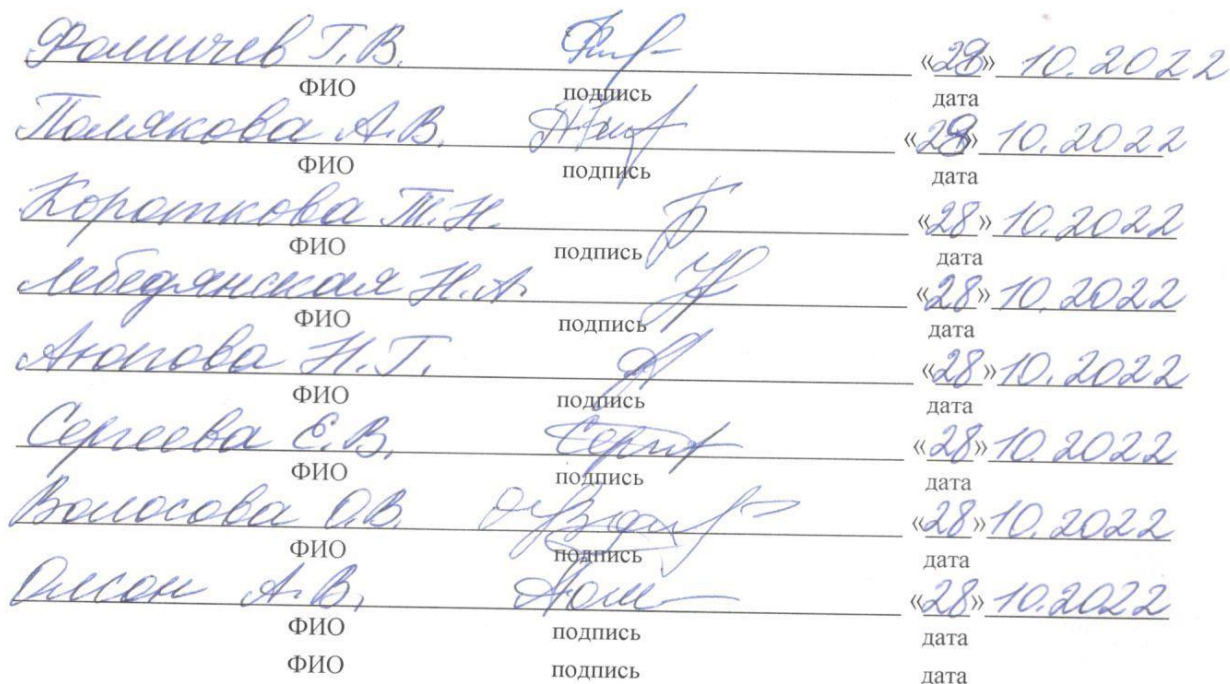 Фомичев Г.В. «28» 10.2022
ФИО подпись дата
Полякова А.В. «28» 10.2022
ФИО подпись дата
Короткова Т.Н. «28» 10.2022
ФИО подпись дата
Лебедянская Н.А. «28» 10.2022
ФИО подпись дата
Аюпова Н.Г. «28» 10.2022
ФИО подпись дата
Сергеева Е.В. «28» 10.2022
ФИО подпись дата
Волосова О.В. «28» 10.2022
ФИО подпись дата
А.В. «28» 10.2022
ФИО подпись дата
ФИО подпись дата